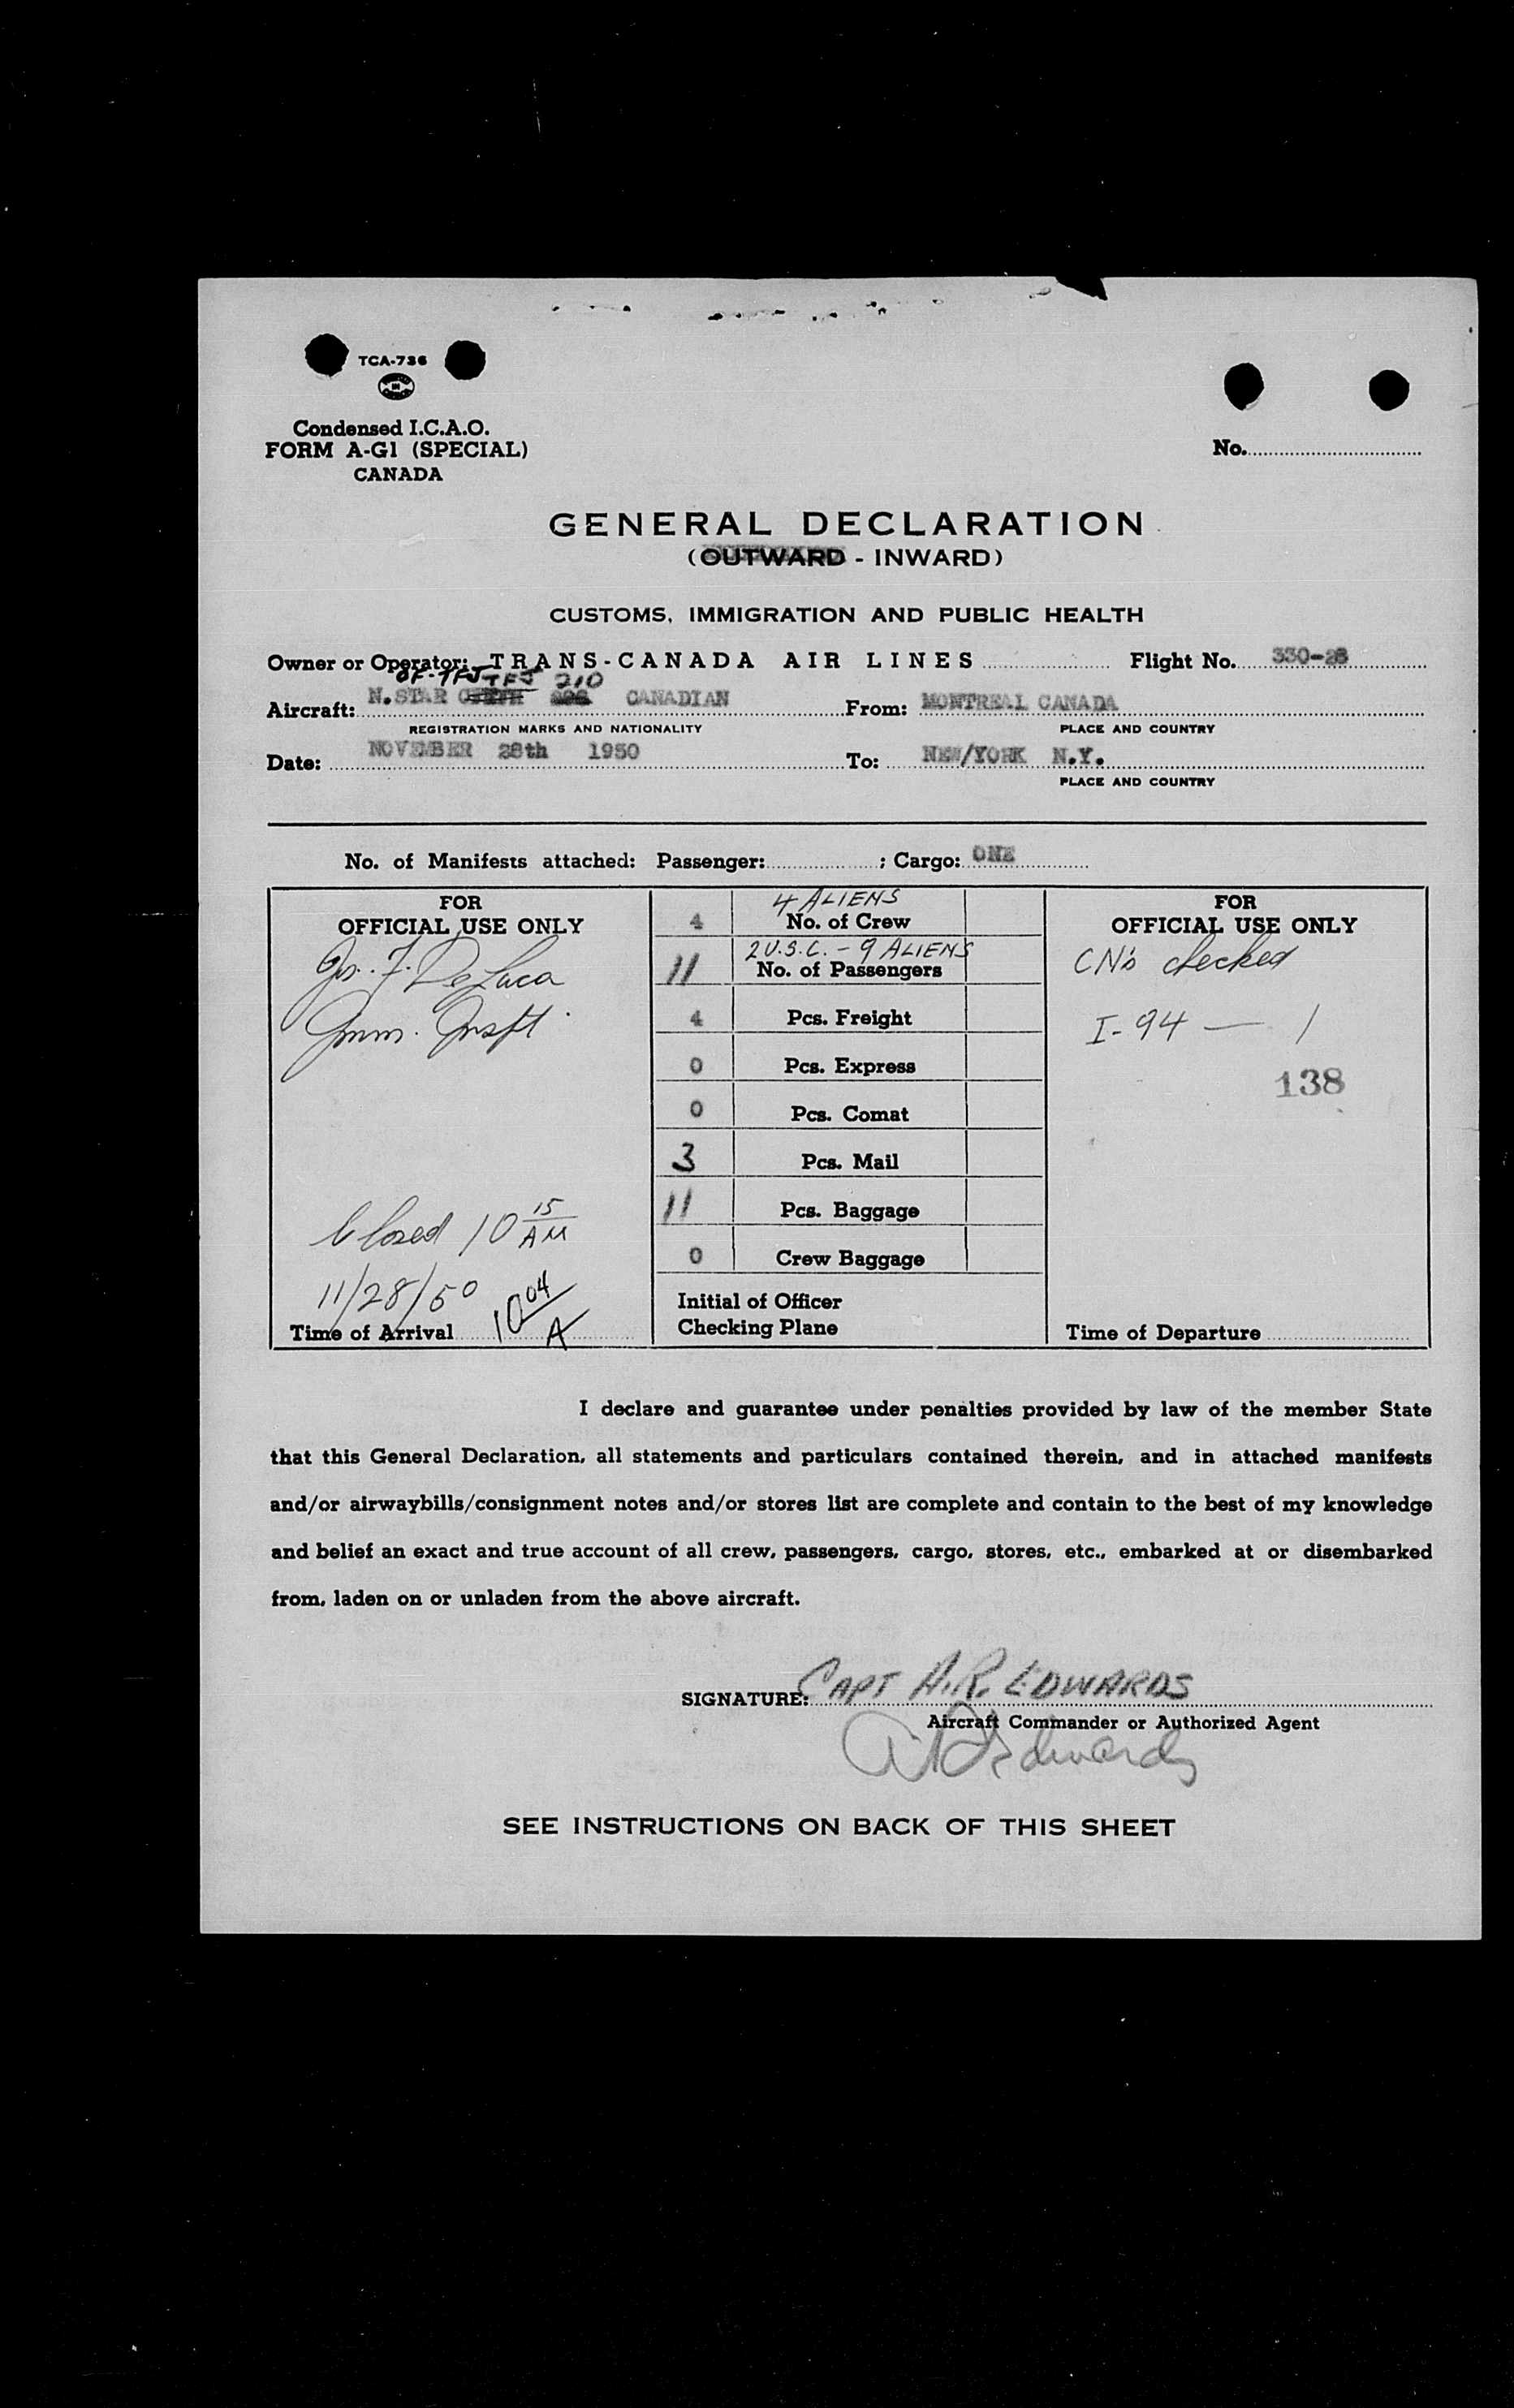 TCA-736
Condensed I.C.A.O.
FORM A-G1 (SPECIAL)
CANADA
No.
GENERAL DECLARATION
(OUTWARD - INWARD)
CUSTOMS, IMMIGRATION AND PUBLIC HEALTH
Owner or Operator: TRANS-CANADA AIR LINES Flight No. 330-28
CF-TFJ TFJ 210
Aircraft: N.STAR CANADIAN From: MONTREAL CANADA
REGISTRATION MARKS AND NATIONALITY PLACE AND COUNTRY
Date: NOVEMBER 28th 1950 To: NEW/YORK N.Y.
PLACE AND COUNTRY
No. of Manifests attached: Passenger: ; Cargo: ONE
FOR OFFICIAL USE ONLY
Jos. F. DeLuca
Imm. Inspt.
Closed 10 15 AM
11/28/50
Time of Arrival 10 04 A
4 ALIENS
4 No. of Crew
2 U.S.C. - 9 ALIENS
11 No. of Passengers
4 Pcs. Freight
0 Pcs. Express
0 Pcs. Comat
3 Pcs. Mail
11 Pcs. Baggage
0 Crew Baggage
Initial of Officer
Checking Plane
FOR OFFICIAL USE ONLY
CN's checked
I-94 — 1
138
Time of Departure
I declare and guarantee under penalties provided by law of the member State
that this General Declaration, all statements and particulars contained therein, and in attached manifests
and/or airwaybills/consignment notes and/or stores list are complete and contain to the best of my knowledge
and belief an exact and true account of all crew, passengers, cargo, stores, etc., embarked at or disembarked
from, laden on or unladen from the above aircraft.
SIGNATURE: CAPT A.R. EDWARDS
Aircraft Commander or Authorized Agent
A R Edwards
SEE INSTRUCTIONS ON BACK OF THIS SHEET